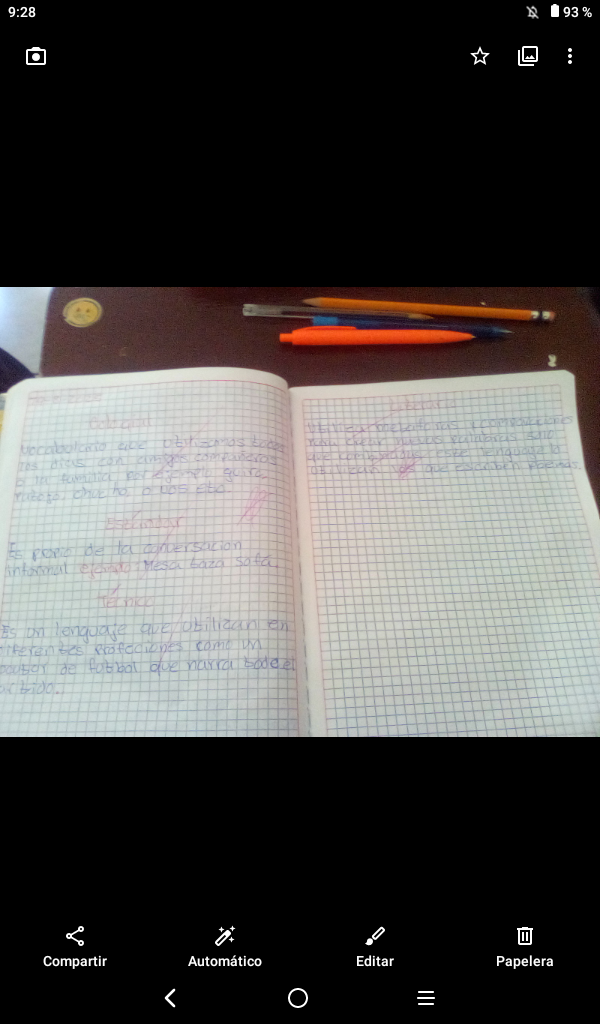 9:28
93 %
Coloquial
Vocabulario que utilizamos todos
los dias con amigos compañeros
o la familia por ejemplo guira
chucho, o bus
Estandar
Es propio de la conversacion
informal ejemplo: Mesa taza sofá
Técnico
Es un lenguaje que utilizan en
diferentes profeciones como un
de futbol que narra todo el
Literario
Utiliza metaforas y composiciones
para crear nuevas palabras sino
que este lenguaje lo
utilizan que escriben poemas.
Compartir
Automático
Editar
Papelera